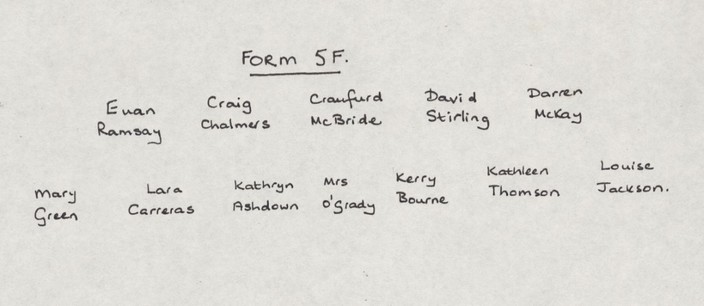 FORM 5F.
Euan Craig Craufurd David Darren
Ramsay Chalmers McBride Stirling McKay
Mary Lara Kathryn Mrs Kerry Kathleen Louise
Green Carreras Ashdown O'Grady Bourne Thomson Jackson.